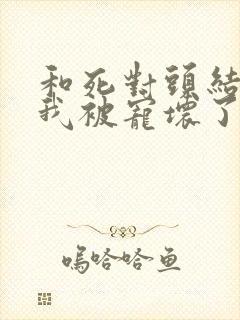 和死對頭結
我被寵壞了
嗚哈哈鱼